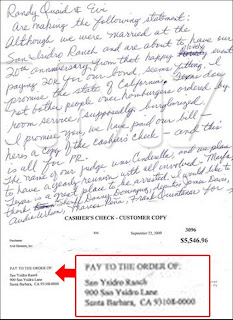 Randy Quaid & Evi
Are making the following statement:
Although we were married at the
San Ysidro Ranch and are about to have our
20th anniversary from that happy event
paying 20K for our bond, seems fitting. I
promise the state of California, Texas does
not bother people over hamburgers ordered by
room service, supposedly burglarized.
I promise you, we have paid our bill
heres a copy of the cashier's check and this
is all for PR.
The name of our judge was Cinderella, and we plan
to have a yearly reunion with all involved. Marfa,
Texas is a great place to be arrested. I would like to
thank Sheriff Danny Dominguez, deputies James Davis,
CASHIER'S CHECK - CUSTOMER COPY
3096
September 22, 2009
$5,546.96
PAY TO THE ORDER OF:
San Ysidro Ranch
900 San Ysidro Lane
Santa Barbara, CA 93108-0000
PAY TO THE ORDER OF:
San Ysidro Ranch
900 San Ysidro Lane
Santa Barbara, CA 93108-0000